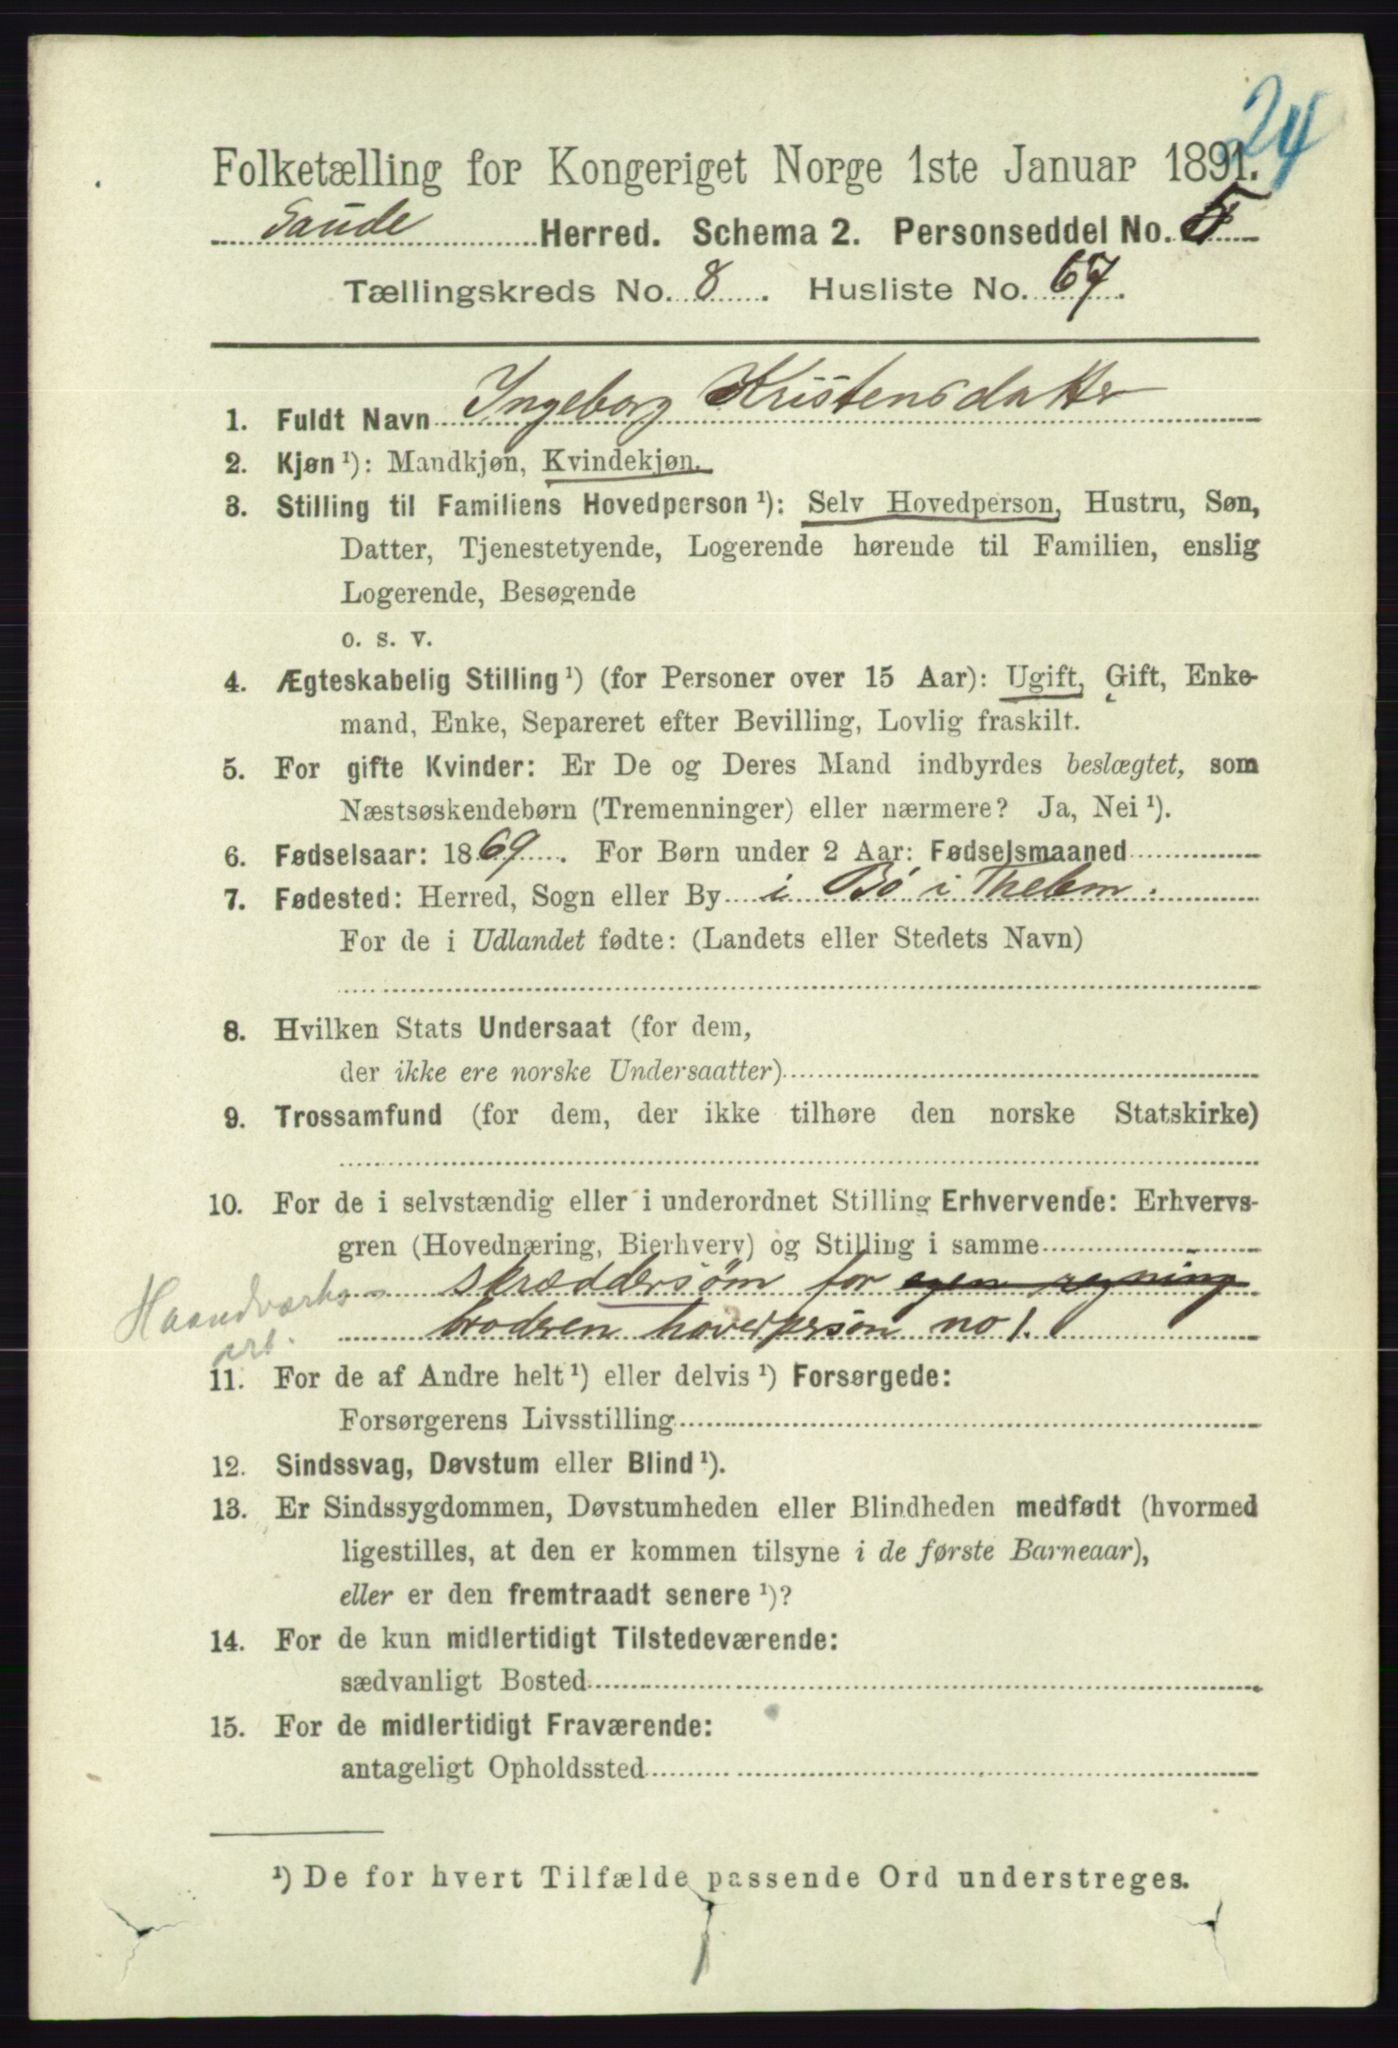 24
Folketælling for Kongeriget Norge 1ste Januar 1891.
Saude Herred. Schema 2. Personseddel No. 5
Tællingskreds No. 8. Husliste No. 67.
1. Fuldt Navn Ingeborg Kristensdatter
2. Kjøn ¹): Mandkjøn, Kvindekjøn.
3. Stilling til Familiens Hovedperson ¹): Selv Hovedperson, Hustru, Søn,
Datter, Tjenestetyende, Logerende hørende til Familien, enslig
Logerende, Besøgende
o. s. v.
4. Ægteskabelig Stilling ¹) (for Personer over 15 Aar): Ugift, Gift, Enke-
mand, Enke, Separeret efter Bevilling, Lovlig fraskilt.
5. For gifte Kvinder: Er De og Deres Mand indbyrdes beslægtet, som
Næstsøskendebørn (Tremenninger) eller nærmere? Ja, Nei ¹).
6. Fødselsaar: 1869. For Børn under 2 Aar: Fødselsmaaned
7. Fødested: Herred, Sogn eller By i Bø i Thelem.
For de i Udlandet fødte: (Landets eller Stedets Navn)
8. Hvilken Stats Undersaat (for dem,
der ikke ere norske Undersaatter)
9. Trossamfund (for dem, der ikke tilhøre den norske Statskirke)
10. For de i selvstændig eller i underordnet Stilling Erhvervende: Erhvervs-
gren (Hovednæring, Bierhverv) og Stilling i samme
skræddersøm for egen regning
Haandværks-
broderen hovedperson no 1.
arb.
11. For de af Andre helt ¹) eller delvis ¹) Forsørgede:
Forsørgerens Livsstilling
12. Sindssvag, Døvstum eller Blind ¹).
13. Er Sindssygdommen, Døvstumheden eller Blindheden medfødt (hvormed
ligestilles, at den er kommen tilsyne i de første Barneaar),
eller er den fremtraadt senere ¹)?
14. For de kun midlertidigt Tilstedeværende:
sædvanligt Bosted
15. For de midlertidigt Fraværende:
antageligt Opholdssted
¹) De for hvert Tilfælde passende Ord understreges.